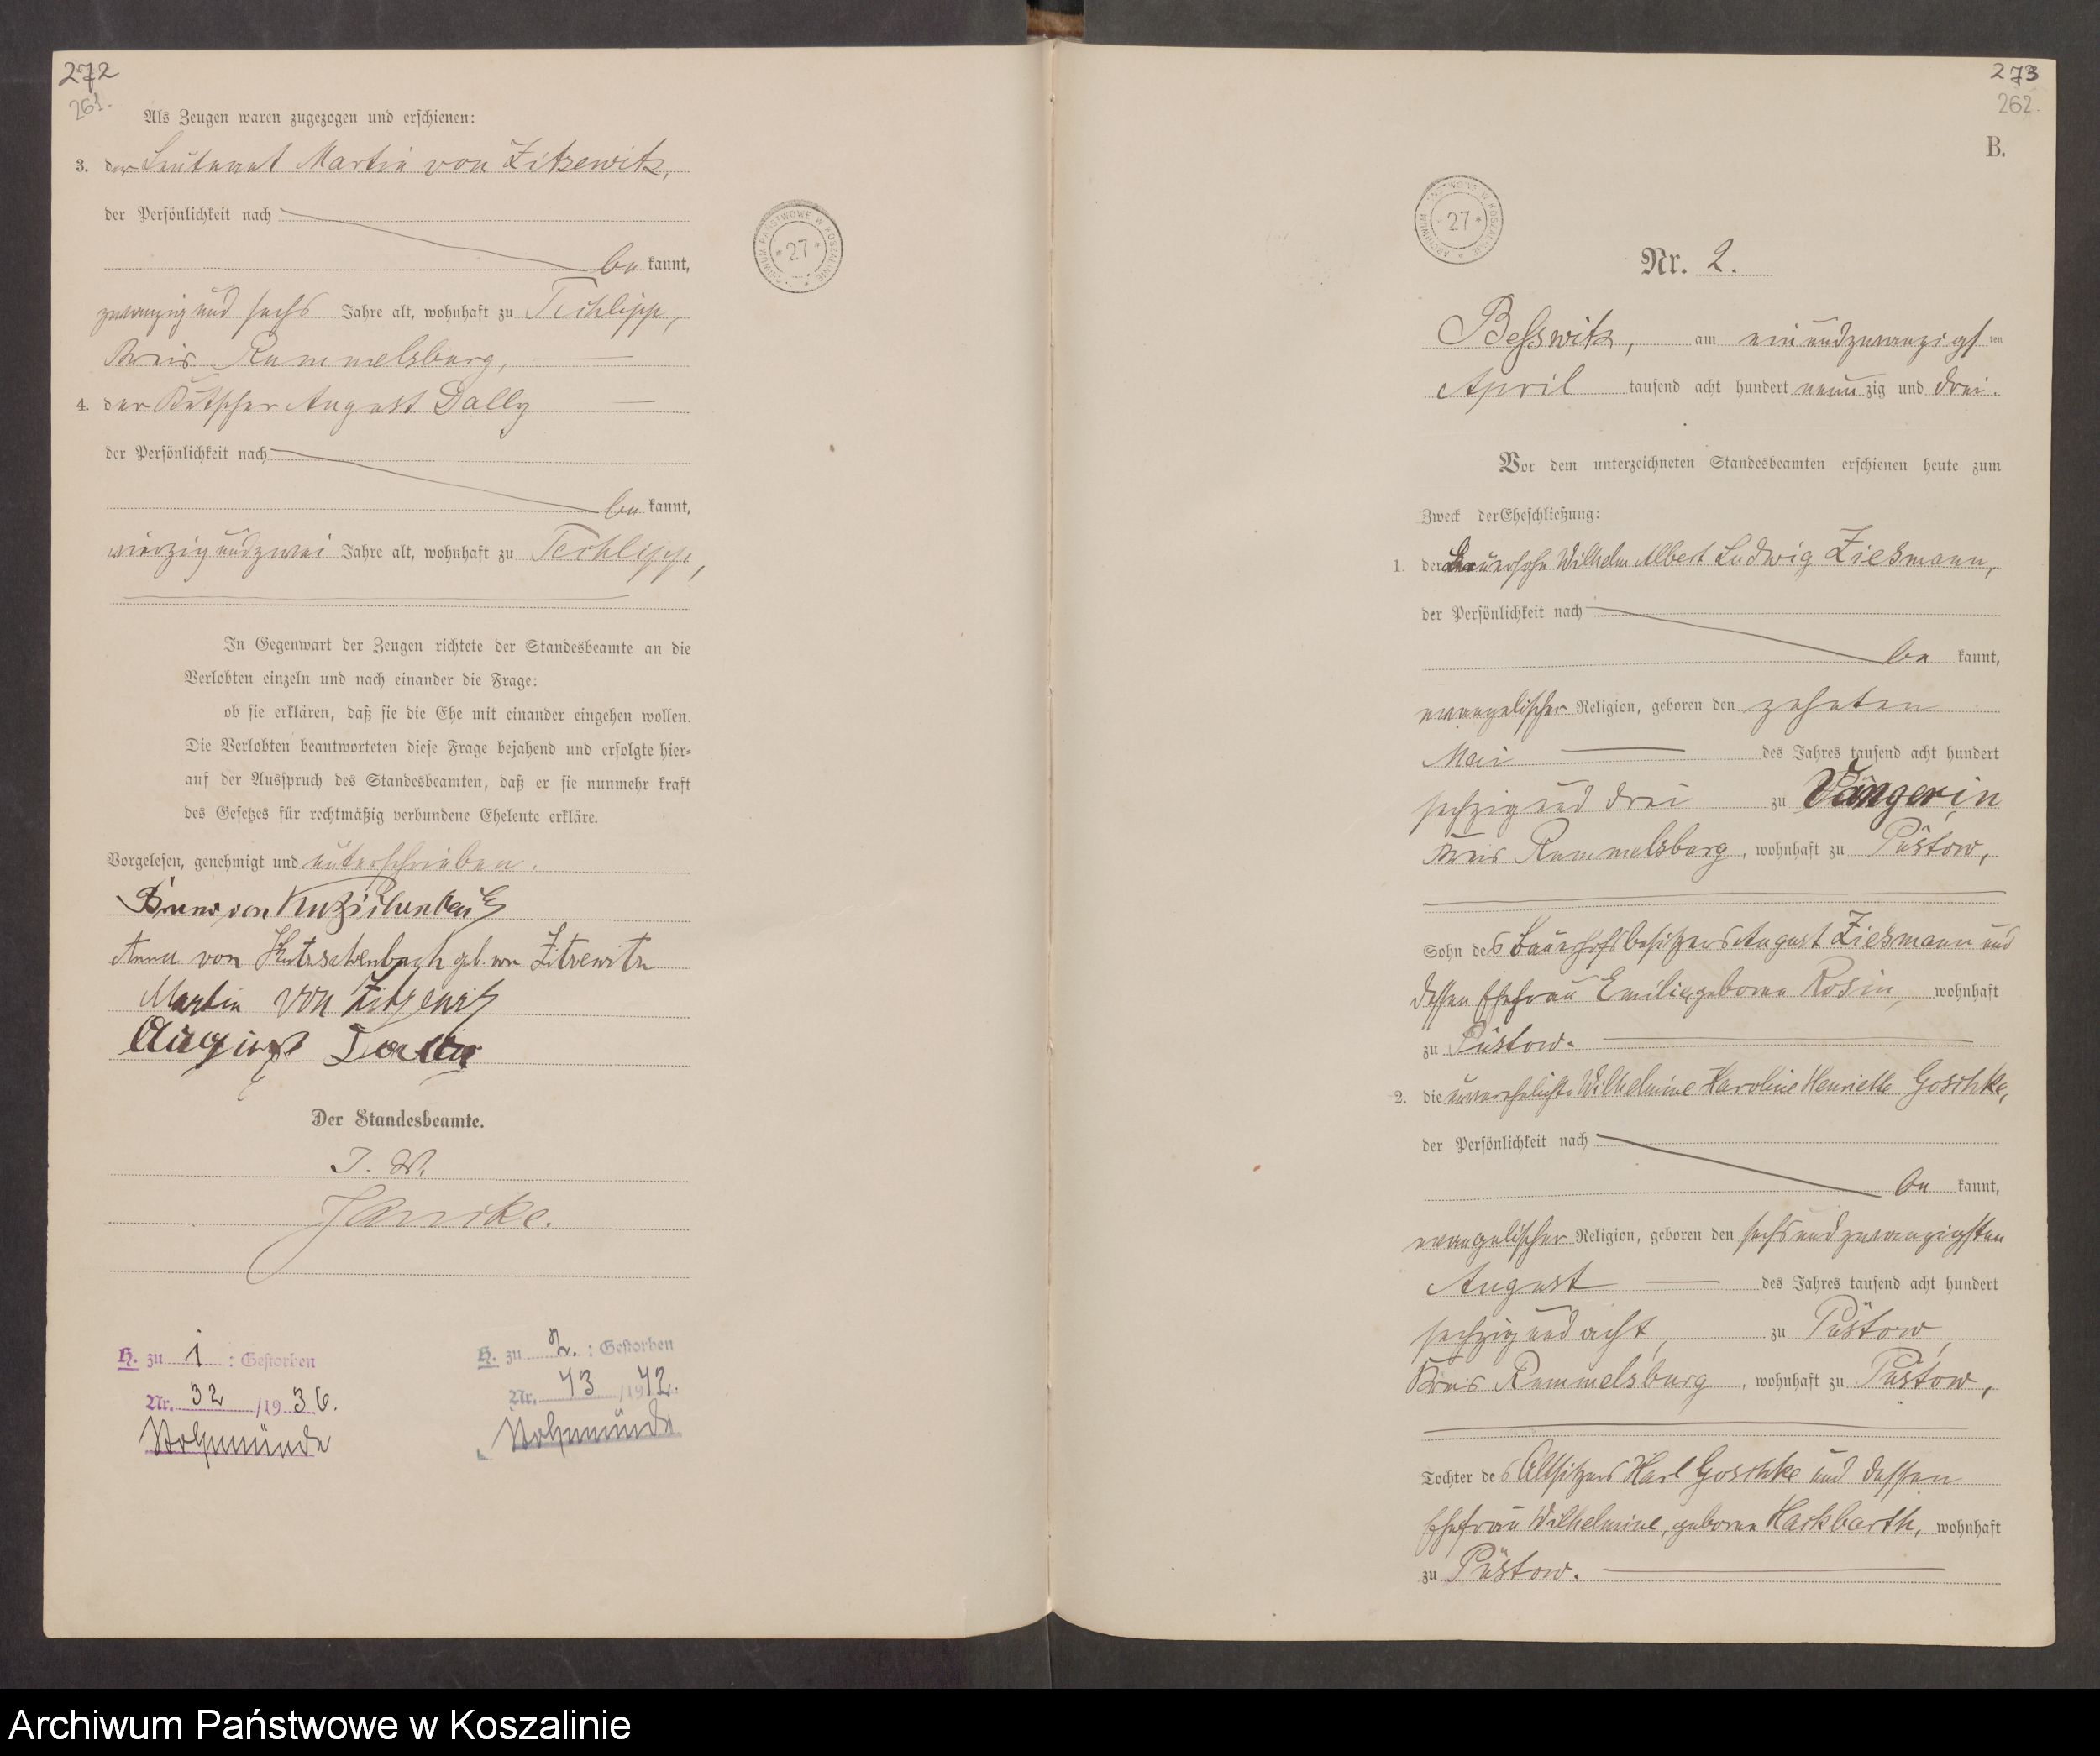 272
261.
Als Zeugen waren zugezogen und erschienen:
3. der Leutnant Martin von Zitzewitz,
der Persönlichkeit nach
be kannt,
zwanzig und sechs Jahre alt, wohnhaft zu Techlipp,
Kreis Rummelsburg,
4. der Kutscher August Dally
der Persönlichkeit nach
be kannt,
vierzig und zwei Jahre alt, wohnhaft zu Techlipp,
In Gegenwart der Zeugen richtete der Standesbeamte an die
Verlobten einzeln und nach einander die Frage:
ob sie erklären, daß sie die Ehe mit einander eingehen wollen.
Die Verlobten beantworteten diese Frage bejahend und erfolgte hier-
auf der Ausspruch des Standesbeamten, daß er sie nunmehr kraft
des Gesetzes für rechtmäßig verbundene Eheleute erkläre.
Vorgelesen, genehmigt und unterschrieben.
Bruno von Kutzschenbach
Anna von Kutzschenbach geb. von Zitzewitz
Martin von Zitzewitz
August
Der Standesbeamte.
J. V.
H. zu 1 : Gestorben
Nr. 32 /1936.
Stolpmünde
H. zu 2. : Gestorben
Nr. 43 /1942.
Stolpmünde
ARCHIWUM PAŃSTWOWE W KOSZALINIE
* 27 *
273
262.
B.
ARCHIWUM PAŃSTWOWE W KOSZALINIE
* 27 *
Nr. 2.
Besswitz, am einundzwanzigsten
April tausend acht hundert neunzig und drei.
Vor dem unterzeichneten Standesbeamten erschienen heute zum
Zweck der Eheschließung:
1. der Bauersohn Wilhelm Albert Ludwig Ziesmann,
der Persönlichkeit nach
be kannt,
evangelischer Religion, geboren den zehnten
Mai des Jahres tausend acht hundert
sechzig und drei zu Wangerin
Kreis Rummelsburg, wohnhaft zu Püstow,
Sohn des Bauerhofsbesitzers August Ziesmann und
dessen Ehefrau Emilie, geborne Rosin, wohnhaft
zu Püstow.
2. die unverehelichte Wilhelmine Karoline Henriette Goschke,
der Persönlichkeit nach
be kannt,
evangelischer Religion, geboren den sechsundzwanzigsten
August des Jahres tausend acht hundert
sechzig und acht, zu Püstow,
Kreis Rummelsburg, wohnhaft zu Püstow,
Tochter des Altsitzers Karl Goschke und dessen
Ehefrau Wilhelmine, geborne Hackbarth, wohnhaft
zu Püstow.
Archiwum Państwowe w Koszalinie